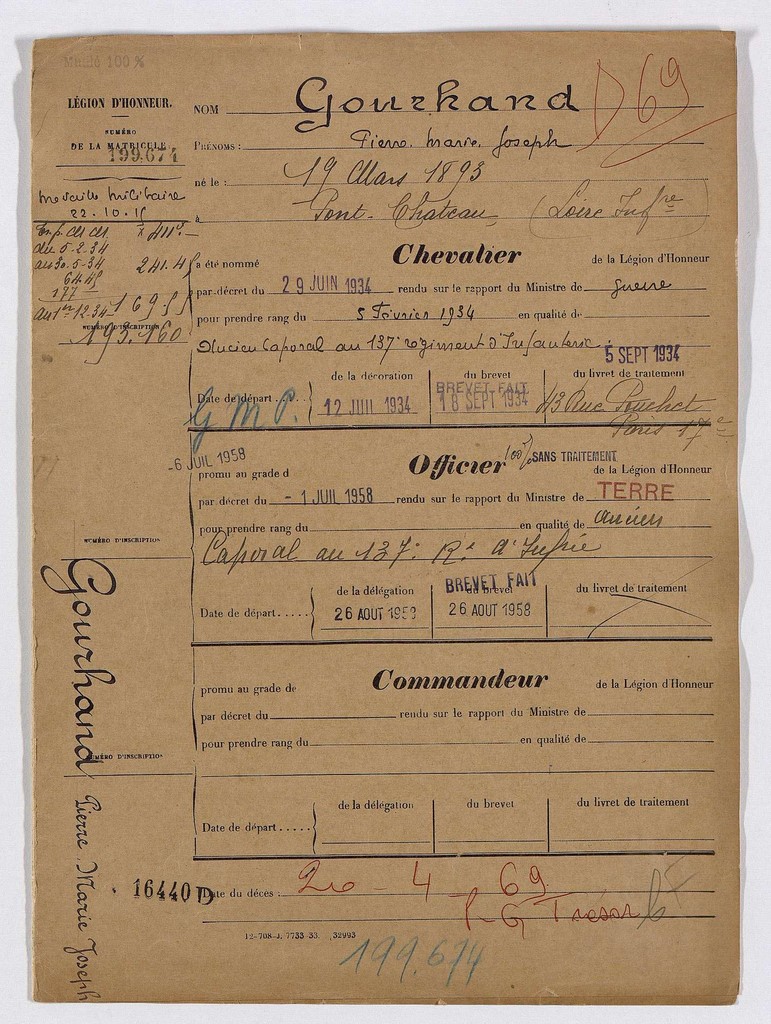 Mutilé 100 %
LÉGION D'HONNEUR.
NUMÉRO
DE LA MATRICULE
199.674
Médaille Militaire
22.10.15
du 5-2-34
au 30.5-34 241.45
64.45
177
au 1er-12-34 169 55
NUMÉRO D'INSCRIPTION
193.160
NOM Gourhand D 69
PRÉNOMS : Pierre Marie Joseph
né le : 19 Mars 1893
à Pont-Chateau (Loire Infre)
Chevalier
a été nommé de la Légion d'Honneur
par décret du 29 JUIN 1934 rendu sur le rapport du Ministre de guerre
pour prendre rang du 5 Février 1934 en qualité de
Ancien Caporal au 137e régiment d'Infanterie
5 SEPT 1934
de la décoration du brevet du livret de traitement
Date de départ..... 12 JUIL 1934 BREVET FAIT 18 SEPT 1934 43 Rue Pouchet
G.M.P. Paris 17e
-6 JUIL 1958
Officier 100% SANS TRAITEMENT
promu au grade d de la Légion d'Honneur
par décret du -1 JUIL 1958 rendu sur le rapport du Ministre de TERRE
pour prendre rang du en qualité de ancien
Caporal au 137e Rt d'Infrie
NUMÉRO D'INSCRIPTION
de la délégation BREVET FAIT du brevet du livret de traitement
Date de départ..... 26 AOUT 1958 26 AOUT 1958
Commandeur
promu au grade de de la Légion d'Honneur
par décret du rendu sur le rapport du Ministre de
pour prendre rang du en qualité de
NUMÉRO D'INSCRIPTION
de la délégation du brevet du livret de traitement
Date de départ.....
16440 D
Date du décès : 20-4-69
P.G Trésor
12-708-J. 7733-33. 32993
199.674
Gourhand Pierre Marie Joseph